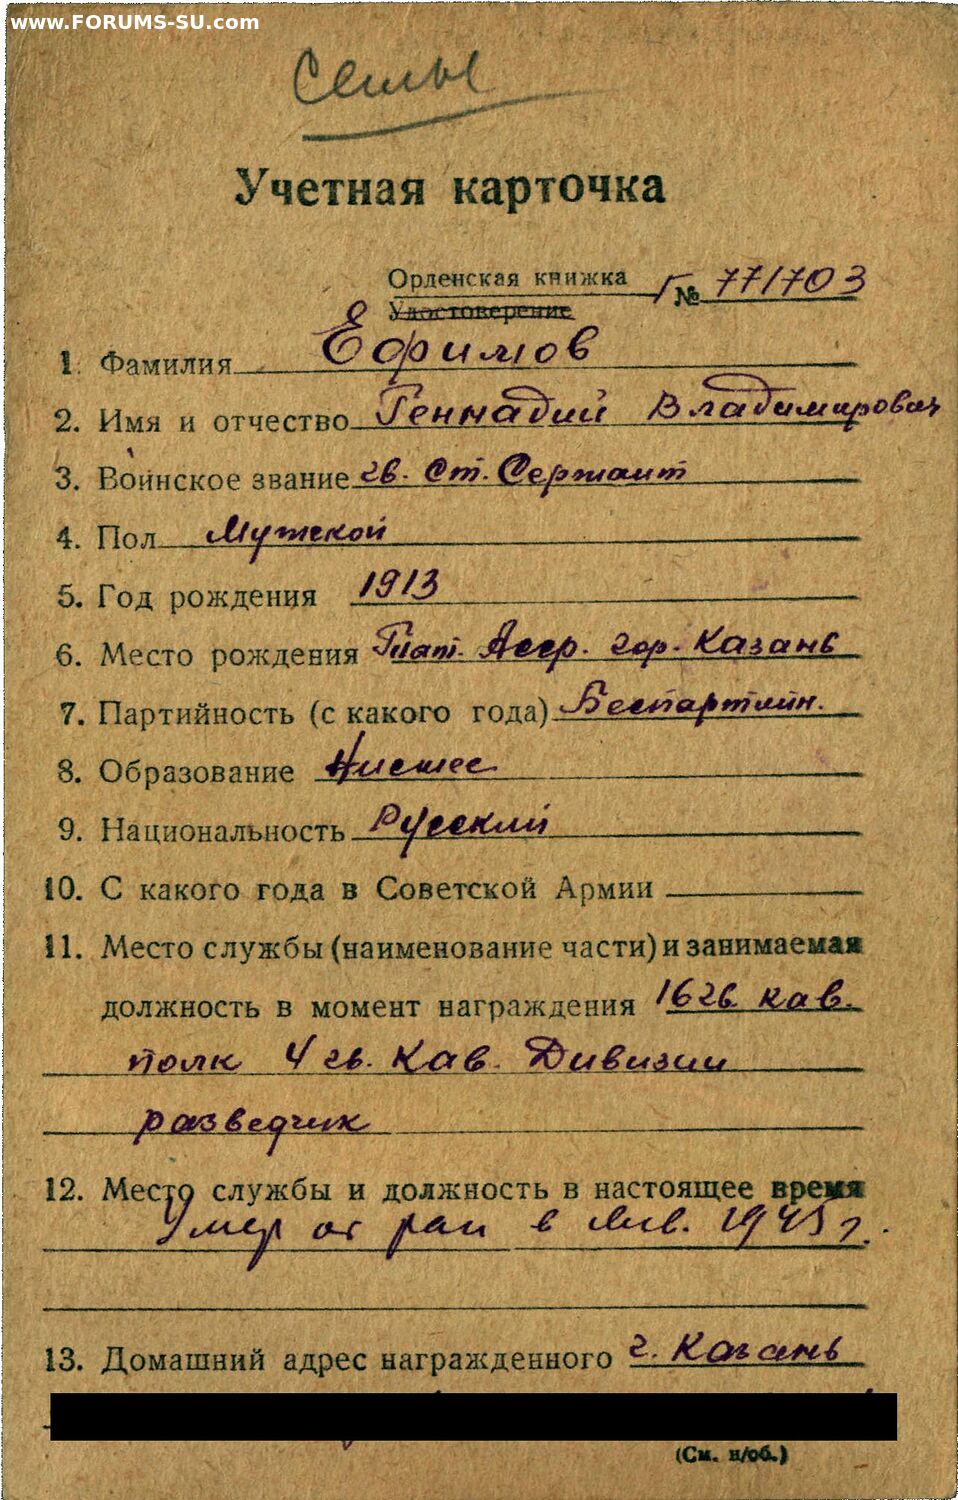 www.FORUMS-SU.com
Семье
Учетная карточка
Орденская книжка Г № 771703
Удостоверение
1. Фамилия Ефимов
2. Имя и отчество Геннадий Владимирович
3. Воинское звание гв. Ст. Сержант
4. Пол Мужской
5. Год рождения 1913
6. Место рождения Тат. Асср. гор. Казань
7. Партийность (с какого года) Беспартийн.
8. Образование Нисшее
9. Национальность Русский
10. С какого года в Советской Армии
11. Место службы (наименование части) и занимаемая
должность в момент награждения 16 гв. кав.
полк 4 гв. Кав. Дивизии
разведчик
12. Место службы и должность в настоящее время
Умер от ран в янв. 1945 г.
13. Домашний адрес награжденного г. Казань
(См. н/об.)